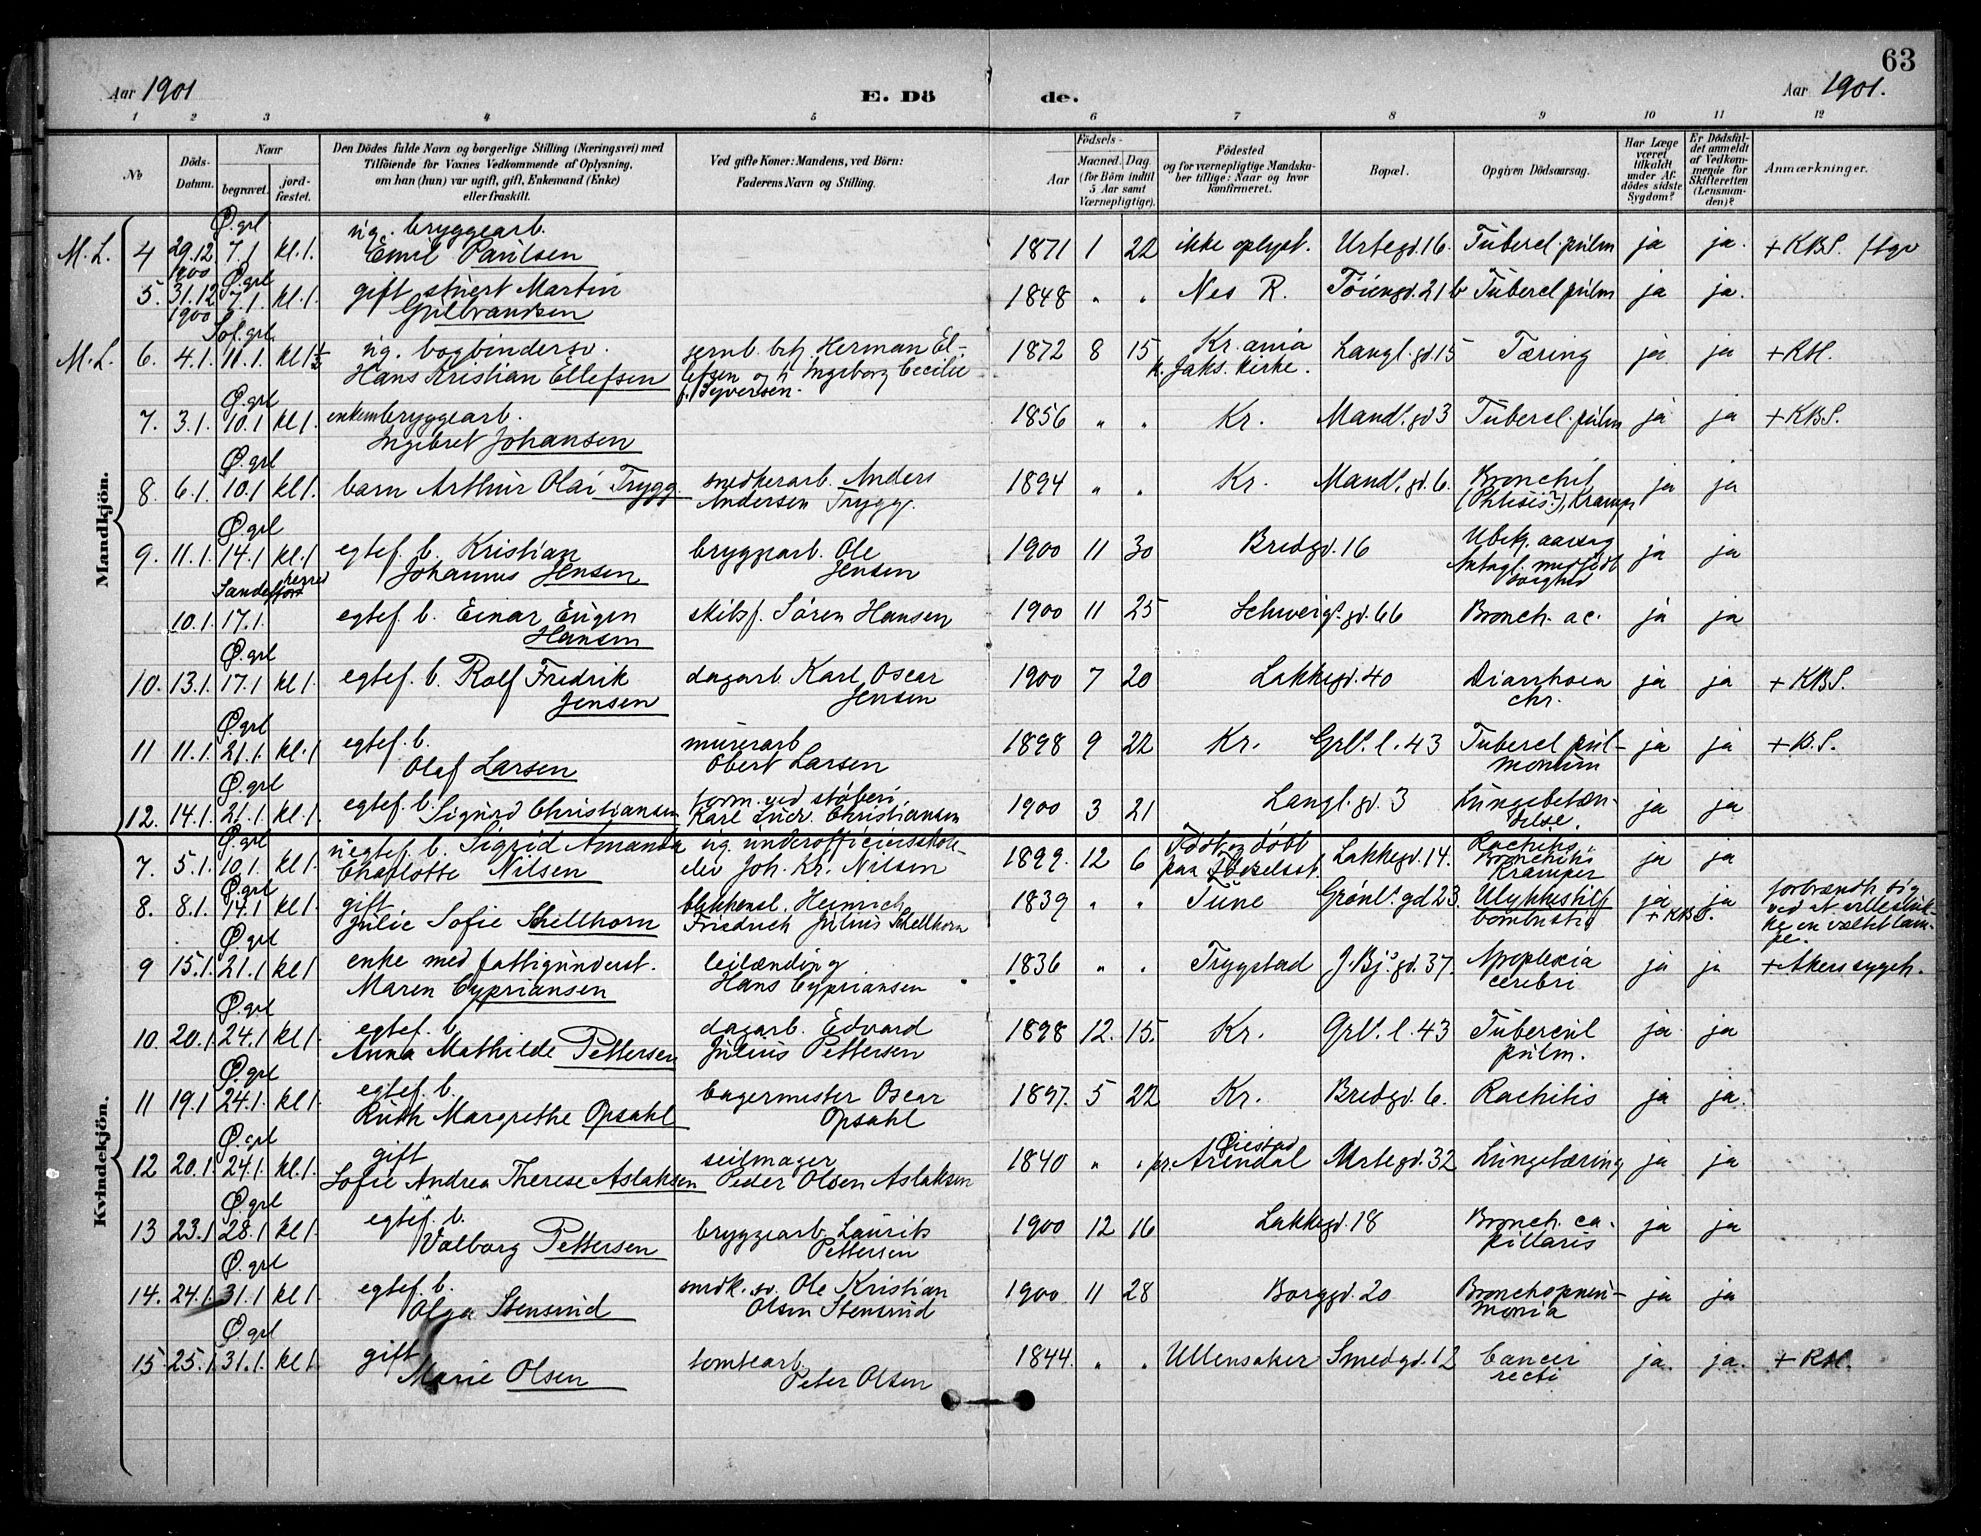 63
Aar 1901
E. Dö
de.
Aar 1901.
1 2 3 4 5 6 7 8 9 10 11 12
No
Döds-Datum.
Naar
begravet.
jord-fæstet.
Den Dödes fulde Navn og borgerlige Stilling (Næringsvei) med
Tilföiende for Voxnes Vedkommende af Oplysning,
om han (hun) var ugift, gift, Enkemand (Enke)
eller fraskilt.
Ved gifte Koner: Mandens, ved Börn:
Faderens Navn og Stilling.
Födsels-
Aar
Maaned. Dag.
(for Börn indtil
5 Aar samt
Værnepligtige).
Födested
og for værnepligtige Mandska-
ber tillige: Naar og hvor
konfirmeret.
Bopæl.
Opgiven Dödsaarsag.
Har Læge
været
tilkaldt
under Af-
dödes sidste
Sygdom?
Er Dödsfal-
det anmeldt
af Vedkom-
mende for
Skifteretten
(Lensman-
den)?
Anmærkninger.
Mandkjön.
Ø. grl ug. bryggearb.
M. L. 4 29.12 7.1 kl. 1. Emil Paulsen 1871 1 22 ikke oplyst. Urtegd. 16. Tubercl. pulm ja ja. + KBS.
1900 Ø. grl
5. 31.12 7.1. kl. 1. gift stuert Martin 1848 " " Nes R. Töiengd. 21 b Tubercl pulm ja ja.
1900 Gulbrandsen
Sof. grl.
M. L. 6. 4.1. 11.1. kl 1½ ug. bogbindersv. Herman El- 1872 8 15 Kr.ania Langl. gd. 15 Tæring ja ja + RH.
Hans Kristian Ellefsen lefsen og h. Ingeborg Cecilie k. Jaks. kirke.
f. Syversen.
Ø. grl
7. 3.1. 10.1 kl 1. enkem bryggearb. 1856 " " Kr. Mandl. gd 3 Tubercl pulm ja ja + KBS.
Ingebret Johansen
Ø. grl
8. 6.1. 10.1 kl 1. barn Arthur Olai Trygg snedkerarb. Anders 1894 " " Kr. Mandl. gd. 6. Bronchit ja ja
Andersen Trygg. (Phtisis?), Kramp.
Ø. grl
9. 11.1. 14.1 kl. 1 egtef. b. Kristian bryggearb. Ole 1900 11 30 Bredgd. 16 Ubek. aarsag ja ja
Johannes Jensen Jensen Antagl. medfödt svaghed
Sandeherred
10.1. 17.1. egtef. b. Einar Eugen skibsf. Sören Hansen 1900 11 25 Schweigs. gd. 66 Bronch. ac. ja ja
Hansen
Ø. grl
10. 13.1. 17.1 kl 1. egtef. b. Rolf Fredrik dagarb. Karl Oscar 1900 7 20 Lakkegd. 40 Diarrhoea ja ja + KBS.
Jensen Jensen chr.
Ø. grl
11 11.1. 21.1. kl. 1 egtef. b. murerarb 1898 9 22 Kr. Grl. l. 43 Tubercl pul- ja ja + B.S.
Olaf Larsen Obert Larsen monum
Ø. grl
12. 14.1. 21.1. kl. 1. egtef. b. form. ved stöberi 1900 3 21 Langl. gd. 3 Lungebetæn- ja ja
Sigurd Christiansen Karl Ludv. Christiansen delse.
Kvindekjön.
Ø. grl
7. 5.1. 10.1. kl 1. uegtef. b. Sigrid Amanda ug. underofficersskole- 1899. 12 6 Födt og döbt Lakkegd. 14. Rachitis, ja ja
Charlotte Nilsen elev Joh. Kr. Nilsen paa Födselsst. Bronchitis
Kramper
Ø. grl
8. 8.1. 14.1 kl 1. gift blikkensl. Heinrich 1839 " " Tune Grönl. gd 23. Ulykkestilf ja ja forbrændte sig
Julie Sofie Schellhorn Friedrich Julius Schellhorn combustio + KBS. ved at ville sluk-
ke en væltet lam-
pe.
Ø. grl
9 15.1. 21.1 kl 1 enke med fattigunderst. leilænding 1836 " " Trygstad J. Bj.s gd. 37. Apoplexia ja ja + Akers sygeh.
Maren Cypriansen Hans Cypriansen cerebri
Ø. grl
10. 20.1. 24.1. kl 1. egtef. b. dagarb. Edvard 1898 12. 15. Kr. Grl. l. 43 Tubercul ja ja
Anna Mathilde Pettersen Julius Pettersen pulm.
Ø. grl
11 19.1 24.1. kl 1. egtef. b. bagermester Oscar 1897. 5 22 Kr. Bredgd. 6. Rachitis ja ja.
Ruth Margrethe Opsahl Opsahl
Ø. grl
12 20.1. 24.1. kl. 1. gift seilmager 1840 " " Öiestad Urtegd. 32 Lungetæring ja ja
Sofie Andrea Therese Aslaksen Peder Olsen Aslaksen pr. Arendal
Ø. grl
13 23.1 28.1 kl 1. egtef. b. bryggearb. Laurits 1900 12 16 Lakkegd. 18 Bronch. ca- ja ja
Valborg Pettersen Pettersen pillaris
Ø. grl
14. 24.1. 31.1 kl 1. egtef. b. snedk. sv. Ole Kristian 1900 11 28 Borggd. 20 Bronchopneu- ja ja
Olga Stensrud Olsen Stensrud monia
Ø. grl
15. 25.1. 31.1. kl 1. gift tomtearb. 1844. " " Ullensaker Smedgd. 12 Cancer ja. ja. + RH.
Marie Olsen Peter Olsen recti